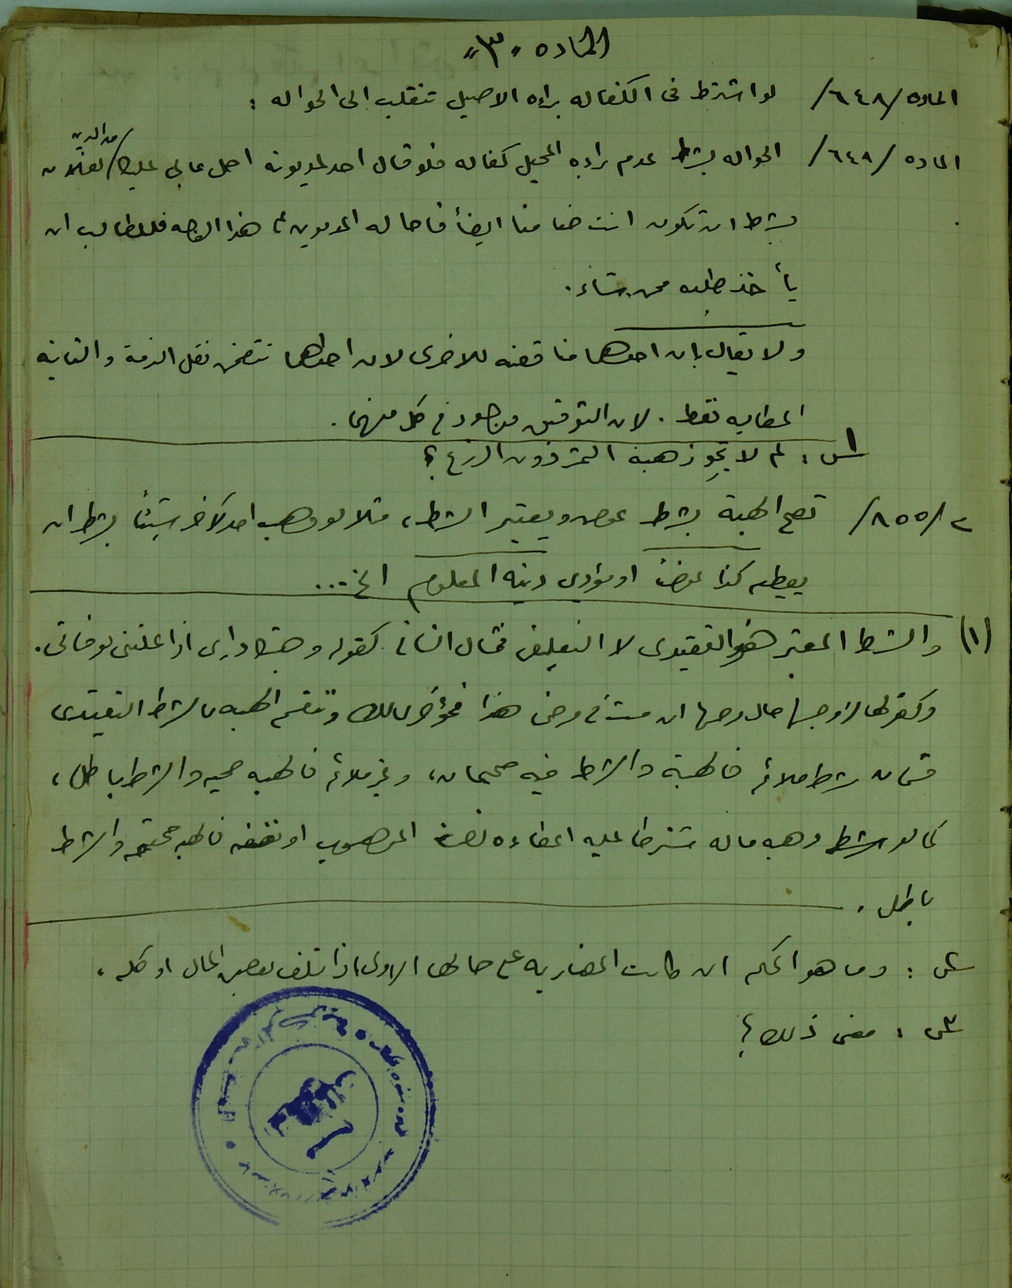 المادة "٣"
الماده /٦٤٨/ لو اشترط فى الكفاله براءه الاصيل تنقلب الى الحواله :
الماده /٦٤٩/ الحواله بشرط عدم براءه المحيل كفاله فلو قال احد لمديونه احل مالي عليك من الدين لفلان
بشرط ان تكون انت ضامنا ايضاً فاحاله المديون على هذا الوجه فللطالب ان
يأخذ طلبه ممن شاء .
ولا يقال بان احدهما مناقضه للاخرى لان احداهما تتضمن نقل الذمة والثانيه
المطالبه فقط . لان التوفيق موجود فى كل منهما .
س١ : لم لا تجوز هبة الثمر دون الزرع ؟
م /٨٥٥/ تصح الهبة بشرط عوض ويعتبر الشرط ، مثلا لو وهب احد لآخر شيئاً بشرط ان
يعطيه كذا عوضاً او يؤدى دينه المعلوم الخ ...
(١) والشرط المعتبر هو التقييدى لا التعليقى فمثال الثانى كقوله وهبتك دارى اذا غلبنى لو فاتى .
وكقولها لزوجها حال مرضها ان مت فى مرضى هذا فمؤخرى لك وتنقسم الهبه بالشرط التقييدى
قسمان شرط ملائم فالهبة والشرط فيه صحيحان ، وغير ملائم فالهبه صحيحه والشرط باطل ،
كما لو وهبه ماله مشترطا عليه اعطاءه الموهوب او نصفه فالهبه صحيحه والشرط
باطل .
س٢ : وما هو الحكم ان كانت المضاربه على حالها الاولى اذا تلف بعض المال او كله ،
س٣ : معنى ذلك ؟